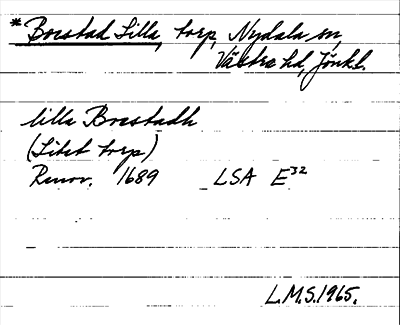 * Borstad Lilla, torp, Nydala sn,
Västra hd, Jönkl.
lilla Borstadh
(Litet torp)
Renov. 1689 LSA E32
L.M.S. 1965.